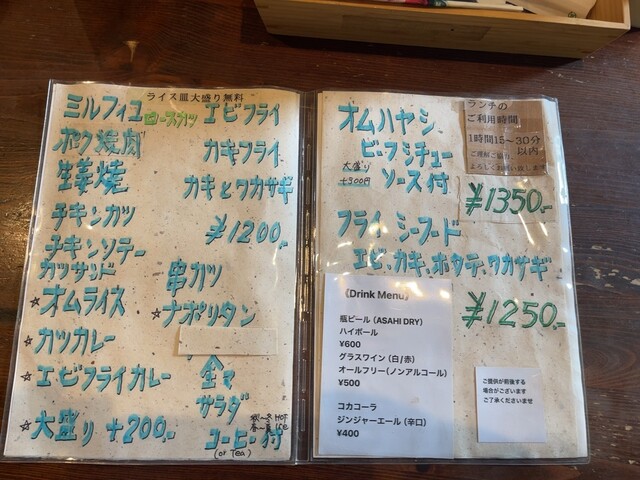 ライス皿大盛り無料
ミルフィユ ロースカツ
ポーク焼肉
生姜焼
チキンカツ
チキンソテー
カツサンド
☆オムライス
☆カツカレー
☆エビフライカレー
☆大盛り +200.-
エビフライ
カキフライ
カキとワカサギ
¥1200.-
串カツ
☆ナポリタン
全て
サラダ
コーヒー付
(or Tea)
オムハヤシ
ビーフシチュー
ソース付
大盛り
+300円
¥1350.-
ランチの
ご利用時間
1時間15~30分
以内
ご理解ご協力、
よろしくお願い致します
フライ シーフード
エビ、カキ、ホタテ、ワカサギ
¥1250.-
《Drink Menu》
瓶ビール (ASAHI DRY)
ハイボール
¥600
グラスワイン (白/赤)
オールフリー(ノンアルコール)
¥500
コカコーラ
ジンジャーエール (辛口)
¥400
ご提供が前後する
場合がございます
ご了承くださいませ